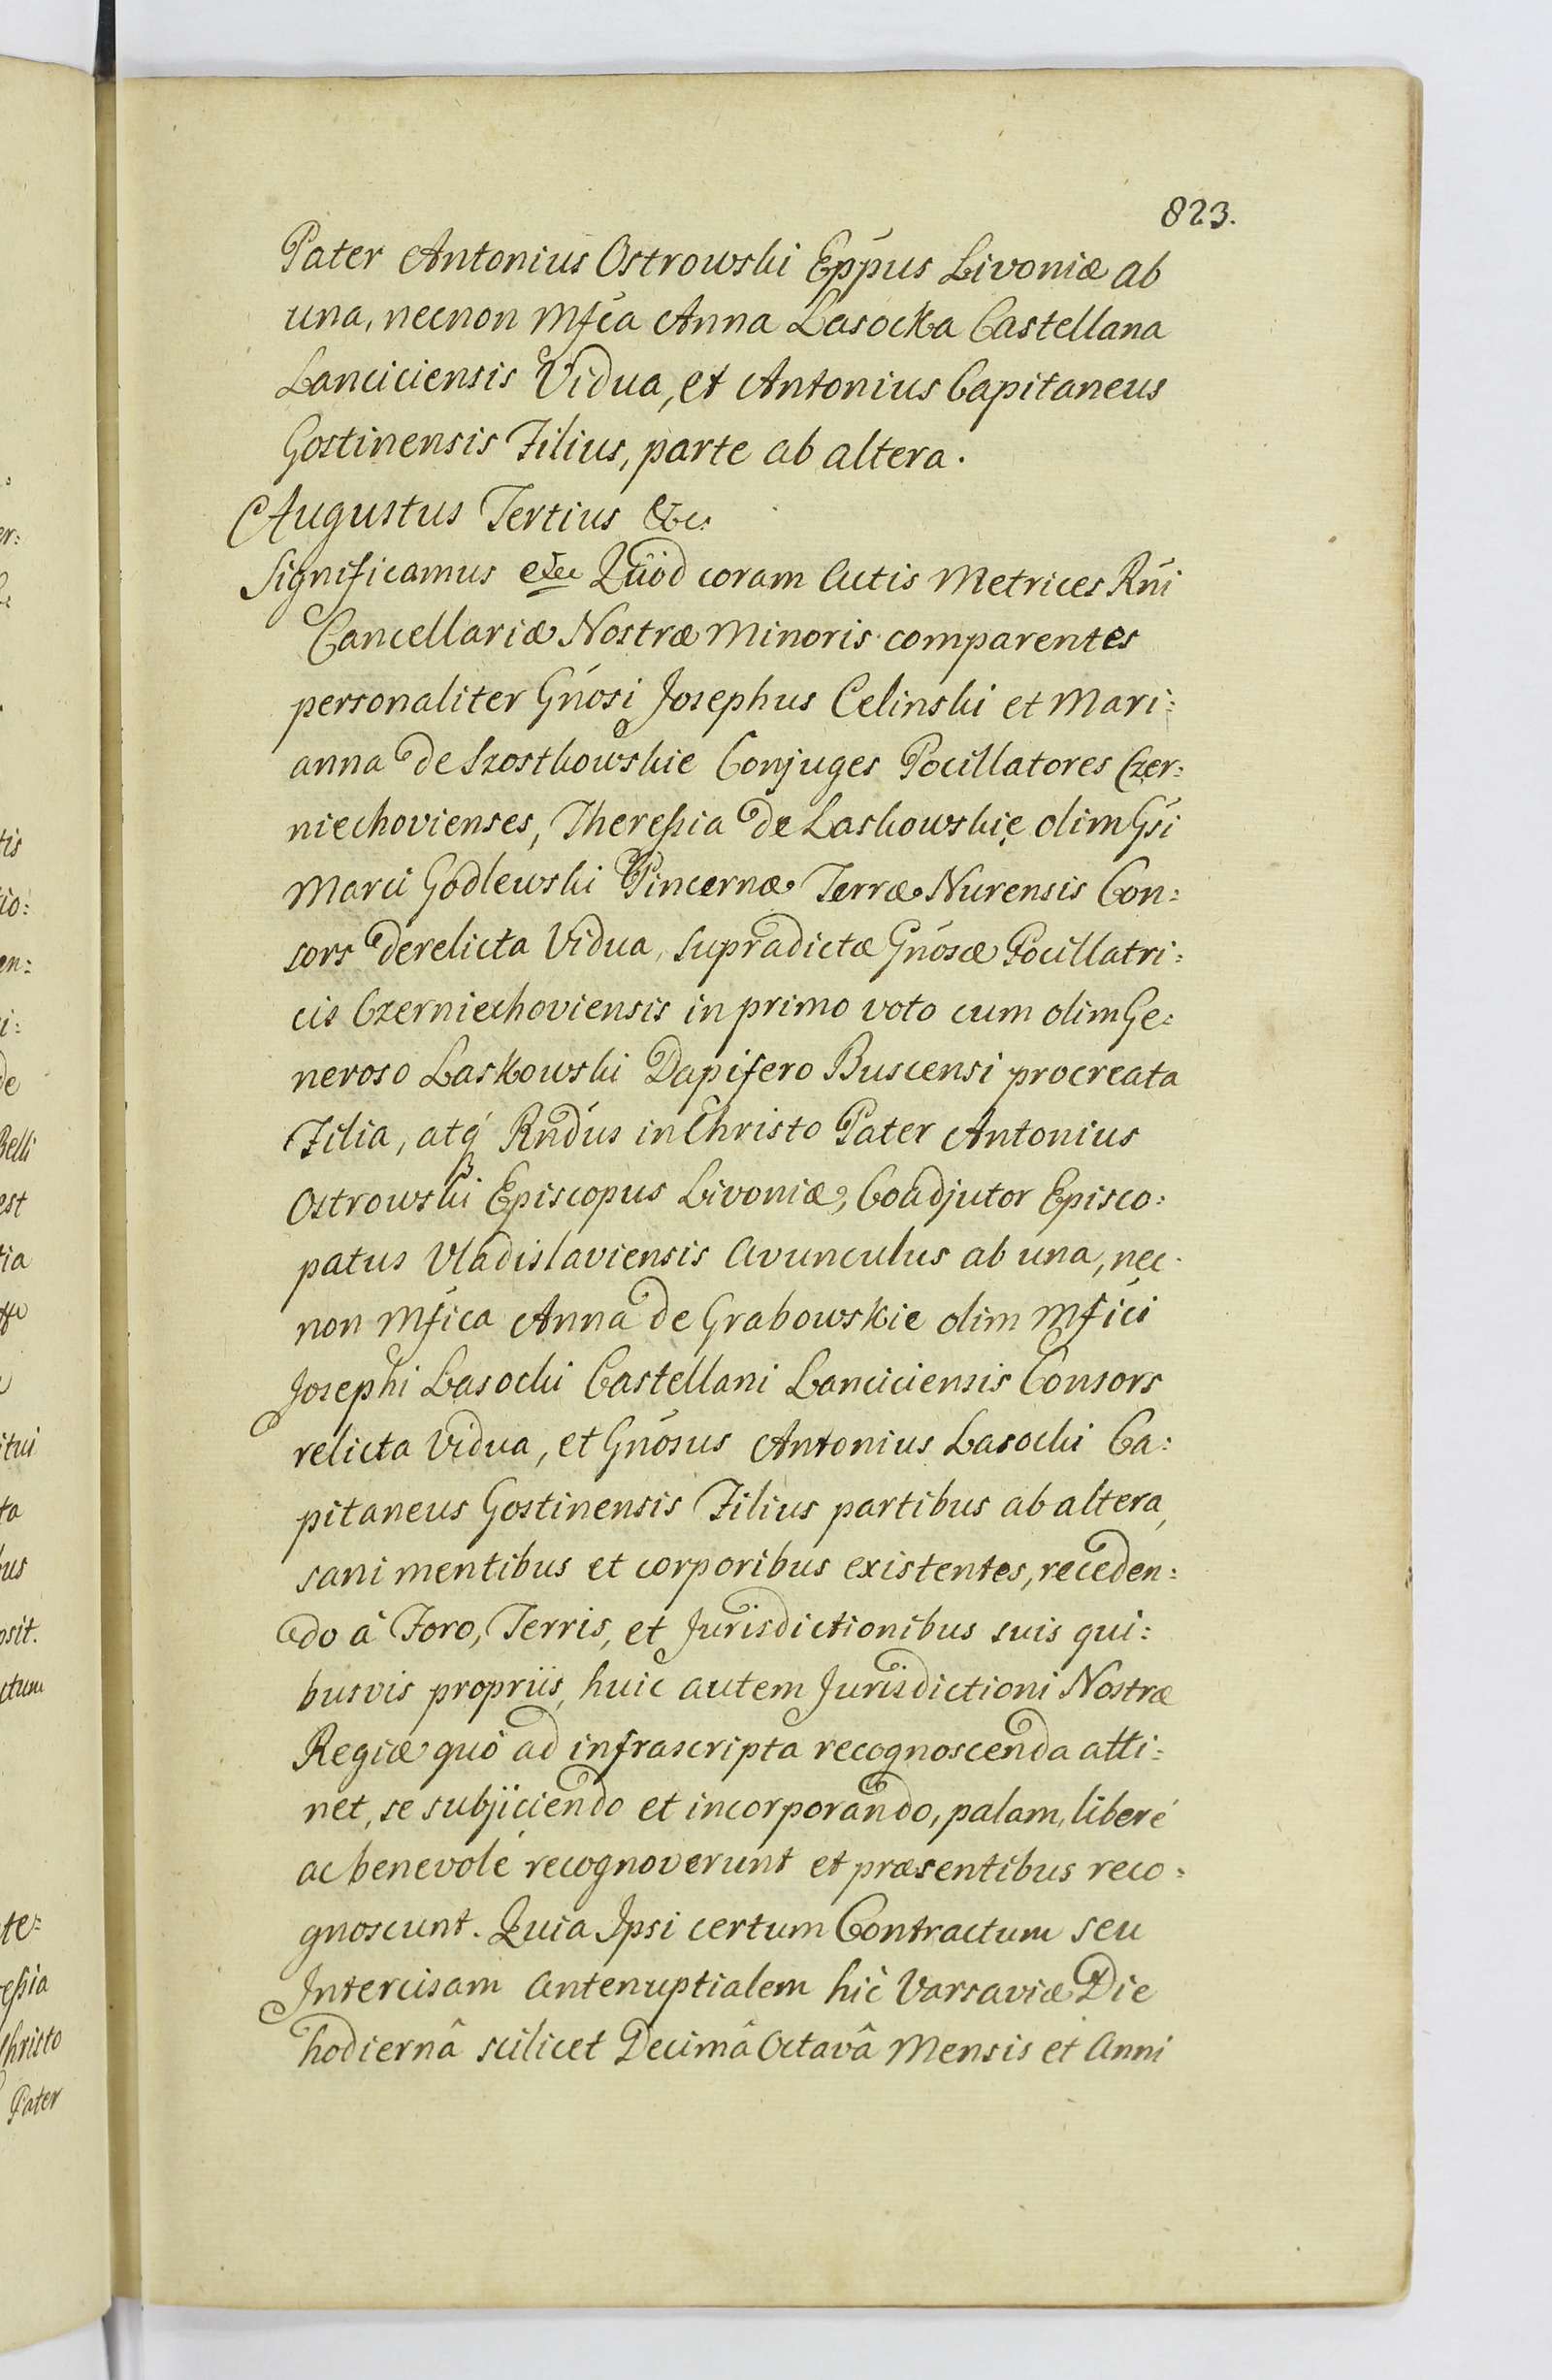 823.
Pater Antonius Ostrowski Eppus Livoniæ ab
una, necnon Mfca Anna Lasocka Castellana
Lanciciensis Vidua, et Antonius Capitaneus
Gostinensis Filius, parte ab altera.
Augustus Tertius &c.
Significamus etc Quod coram Actis Metrices Rni
Cancellariæ Nostræ Minoris comparentes
personaliter Gnosi Josephus Celinski et Mari:
anna de Szostkowskie Conjuges Pocillatores Czer:
niechovienses, Theressia de Laskowskie olim Gsi
Marci Godlewski Pincernæ Terræ Nurensis Con:
sors derelicta Vidua, supradictæ Gnosæ Pocillatri:
cis Czerniechoviensis in primo voto cum olim Ge:
neroso Laskowski Dapifero Buscensi procreata
Filia, atq Rndus in Christo Pater Antonius
Ostrowski Episcopus Livoniæ, Coadjutor Episco:
patus Vladislaviensis Avunculus ab una, nec.
non Mfica Anna de Grabowskie olim Mfici
Josephi Lasocki Castellani Lanciciensis Consors
relicta Vidua, et Gnosus Antonius Lasocki Ca:
pitaneus Gostinensis Filius partibus ab altera,
sani mentibus et corporibus existentes, receden:
do â Foro, Terris, et Jurisdictionibus suis qui:
busvis propriis, huic autem Jurisdictioni Nostræ
Regiæ quò ad infrascripta recognoscenda atti:
net, se subjiciendo et incorporando, palam, liberé
ac benevolé recognoverunt et præsentibus reco:
gnoscunt. Quia Ipsi certum Contractum seu
Intercisam Antenuptialem hic Varsaviæ Die
hodiernâ scilicet Decimâ Octavâ Mensis et Anni